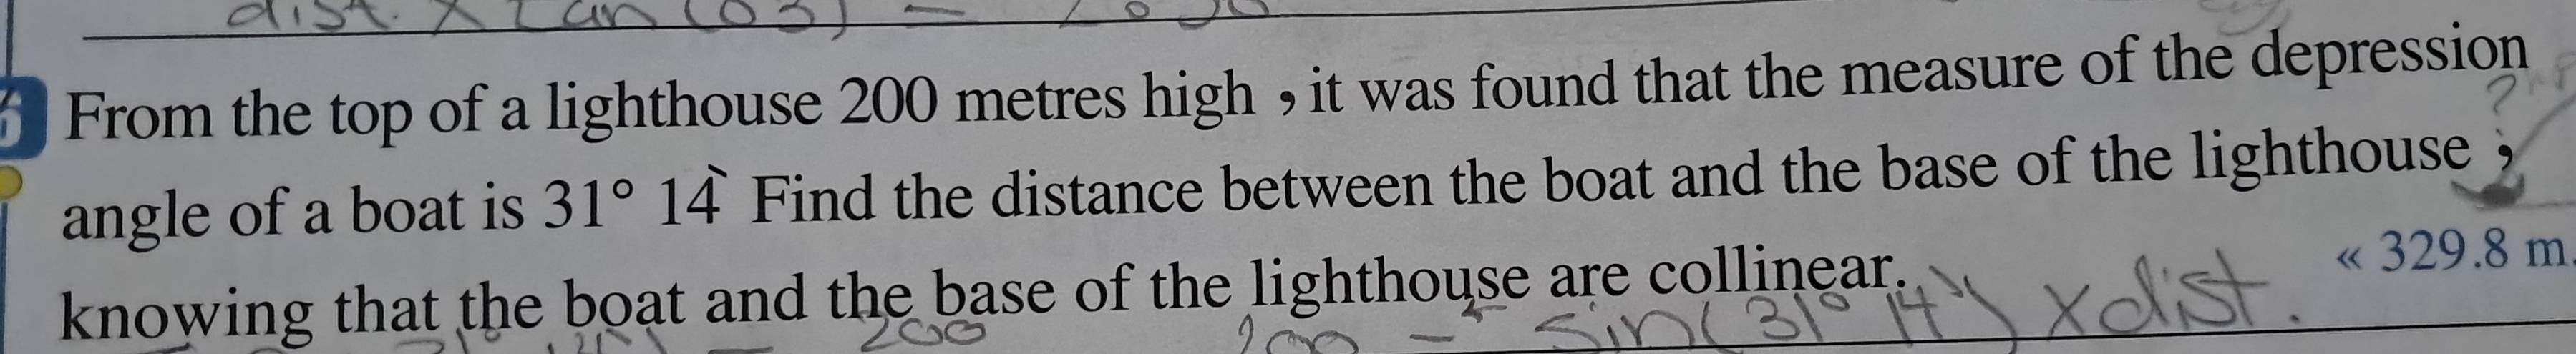 dist. x tan(63) =
6 From the top of a lighthouse 200 metres high , it was found that the measure of the depression
angle of a boat is 31° 14` Find the distance between the boat and the base of the lighthouse ,
knowing that the boat and the base of the lighthouse are collinear.
« 329.8 m.
200 200 = sin(31° 14`) x dist.